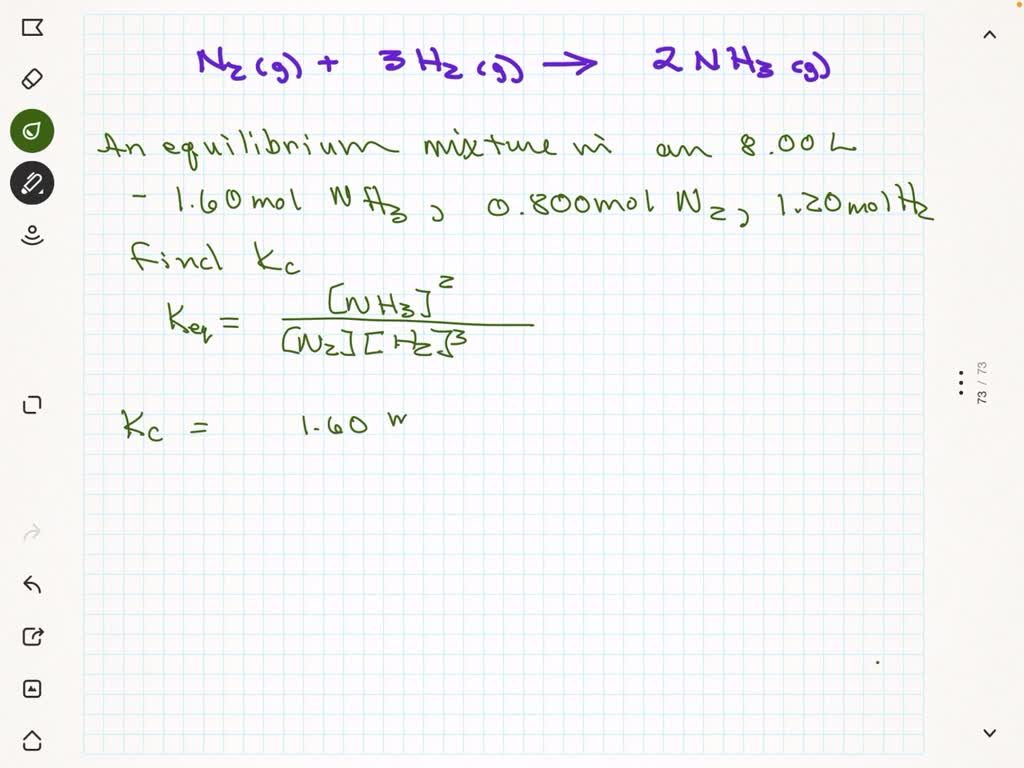 N₂(g) + 3H₂(g) → 2NH₃(g)
An equilibrium mixture in an 8.00 L
- 1.60 mol NH₃, 0.800 mol N₂, 1.20 mol H₂
Find Kc
Keq = [NH₃]²
[N₂][H₂]³
Kc = 1.60
73 / 73